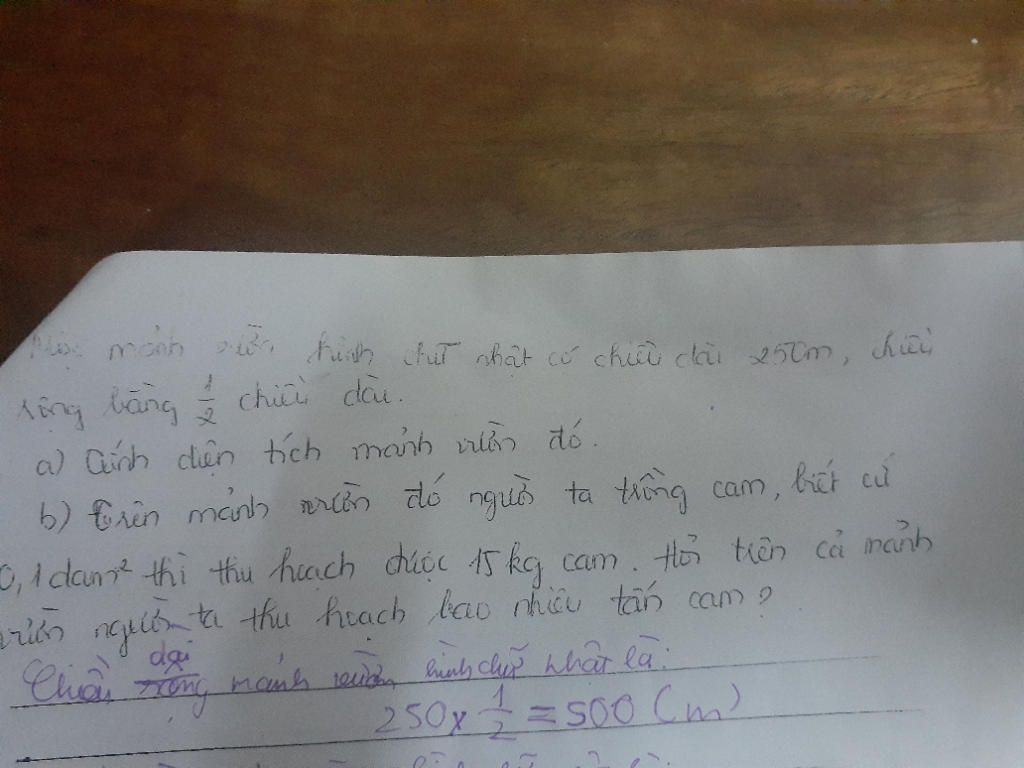 Một mảnh vườn hình chữ nhật có chiều dài 250m, chiều
rộng bằng 1/2 chiều dài.
a) Tính diện tích mảnh vườn đó.
b) Trên mảnh vườn đó người ta trồng cam, biết cứ
0,1dam² thì thu hoạch được 15kg cam. Hỏi trên cả mảnh
vườn người ta thu hoạch bao nhiêu tấn cam?
dài
Chiều rộng mảnh vườn hình chữ nhật là:
250 x 1/2 = 500 (m)